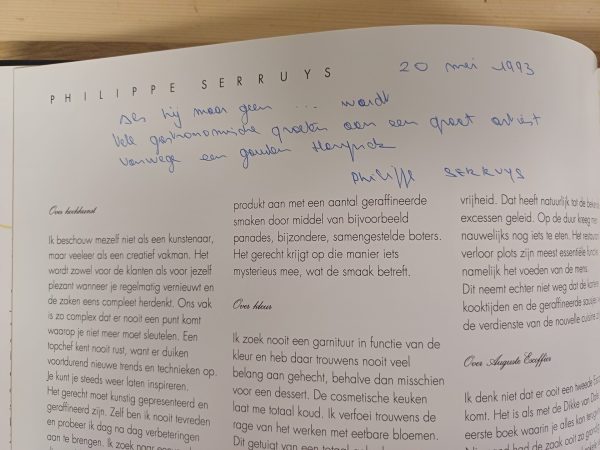 PHILIPPE SERRUYS
20 mei 1993
als hij maar geen ... wordt
Vele gastronomische groeten aan een groot artiest
vanwege een gouden
Philippe SERRUYS
Over kookkunst
Ik beschouw mezelf niet als een kunstenaar,
maar veeleer als een creatief vakman. Het
wordt zowel voor de klanten als voor jezelf
plezant wanneer je regelmatig vernieuwt en
de zaken eens compleet herdenkt. Ons vak
is zo complex dat er nooit een punt komt
waarop je niet meer moet sleutelen. Een
topchef kent nooit rust, want er duiken
voortdurend nieuwe trends en technieken op.
Je kunt je steeds weer laten inspireren.
Het gerecht moet kunstig gepresenteerd en
geraffineerd zijn. Zelf ben ik nooit tevreden
en probeer ik dag na dag verbeteringen
aan te brengen. Ik zoek naar
produkt aan met een aantal geraffineerde
smaken door middel van bijvoorbeeld
panades, bijzondere, samengestelde boters.
Het gerecht krijgt op die manier iets
mysterieus mee, wat de smaak betreft.
Over kleur
Ik zoek nooit een garnituur in functie van de
kleur en heb daar trouwens nooit veel
belang aan gehecht, behalve dan misschien
voor een dessert. De cosmetische keuken
laat me totaal koud. Ik verfoei trouwens de
rage van het werken met eetbare bloemen.
Dit getuigt van een totaal
vrijheid. Dat heeft natuurlijk tot de
excessen geleid. Op de duur kreeg
nauwelijks nog iets te eten. Het
verloor plots zijn meest essentiële
namelijk het voeden van de mens.
Dit neemt echter niet weg dat de
kooktijden en de geraffineerde
de verdienste van de nouvelle cuisine
Over Auguste Escoffier
Ik denk niet dat er ooit een tweede
komt. Het is als met de Dikke van Dale
eerste boek waarin je alles kan
had de zaak ooit zo